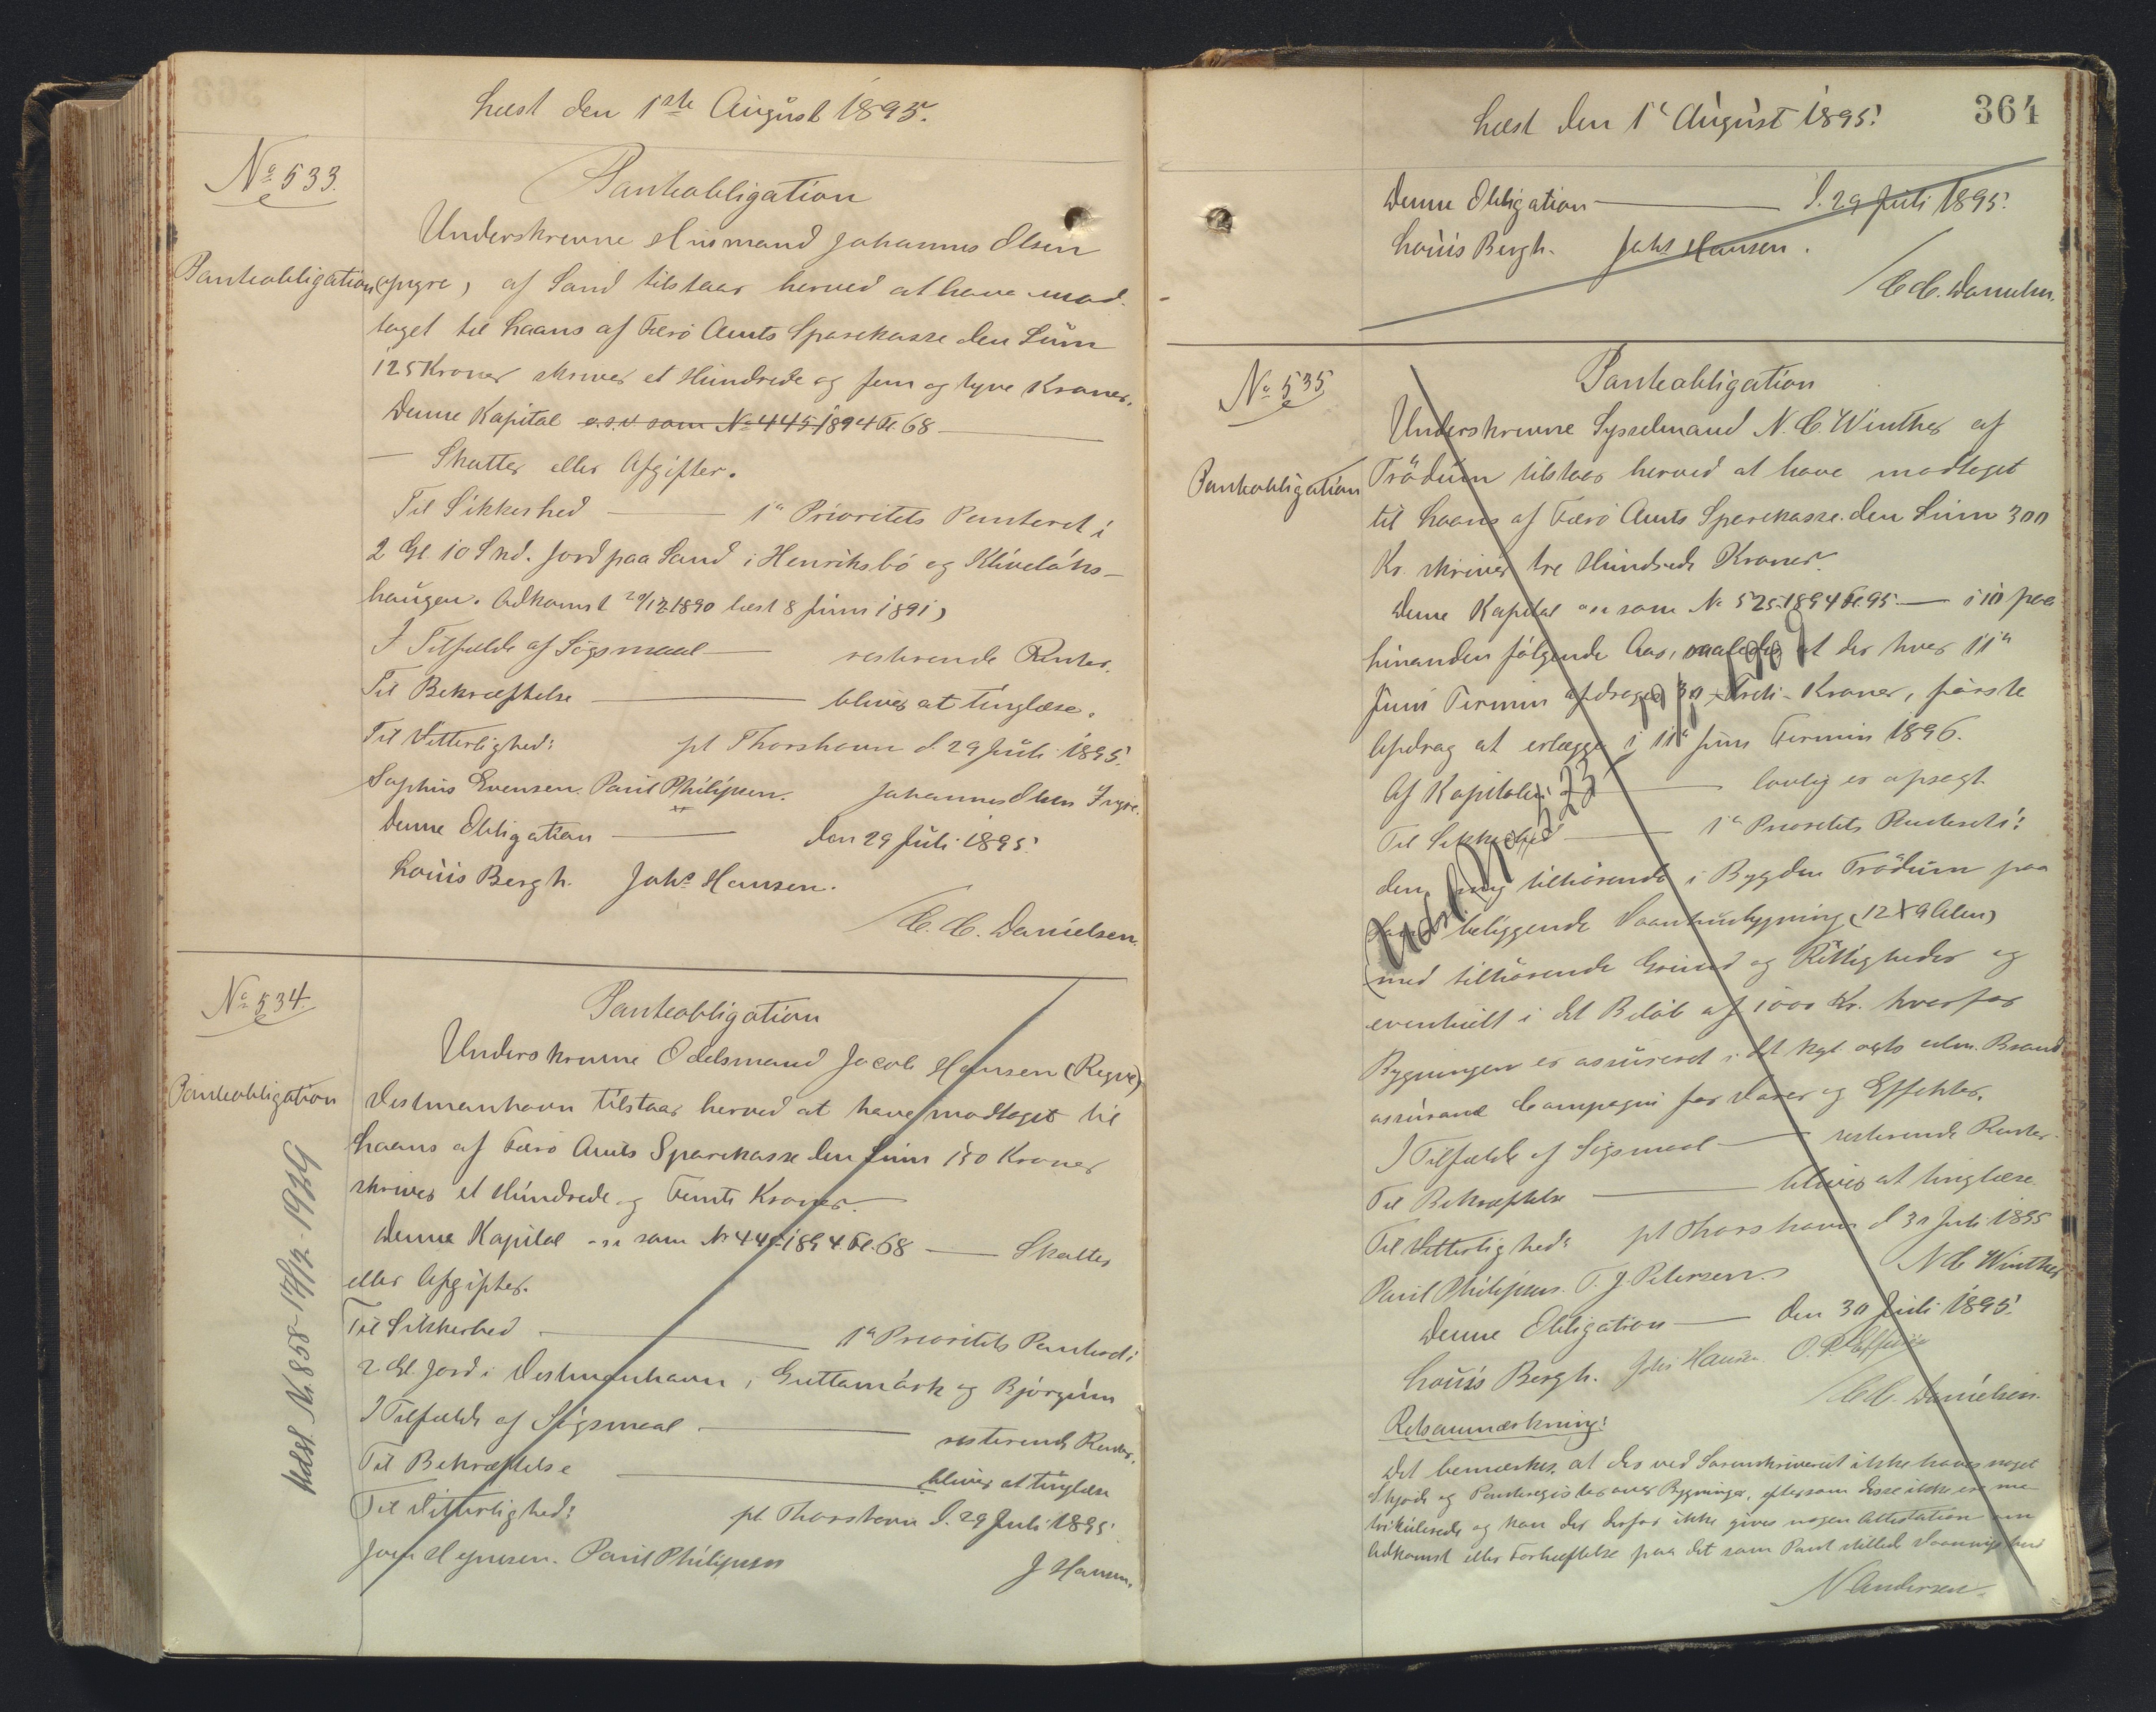 Læst den 1ste August 1895.
No 533.
Panteobligation
Underskrevne Husmand Johannes Olsen
Panteobligation
(yngre), af Sand tilstaar herved at have mod-
taget til Laans af Færø Amts Sparekasse den Sum
125 Kroner skriver et Hundrede og fem og tyve Kroner.
Denne Kapital o.s.v. som No 445 1894 Fl. 68 —
— Skatter eller Afgifter.
Til Sikkerhed — 1ste Prioritets Panteret i
2 Gl. 10 Skd. Jord paa Sand i Henriksbø og
haugen. Adkomst 29/12 1890 læst 8 Juni 1891)
I Tilfælde af Søgsmaal — resterende Renter.
Til Bekræftelse — bliver at tinglæse.
Til Vitterlighed: pt Thorshavn d. 29 Juli 1895.
Sophus Evensen. Paul Philipsen. Johannes Olsen Yngre.
Denne Obligation — den 29 Juli 1895.
Louis Bergh. Johs Hansen.
/C. C. Danielsen.
No 534.
Panteobligation
Underskrevne Odelsmand Jacob Hansen (Regve)
Panteobligation
Vestmanhavn tilstaar herved at have modtaget til
Laans af Færø Amts Sparekasse den Sum 150 Kroner
skriver et Hundrede og Femti Kroner.
Denne Kapital o.s.v. som Nr 445 1894 Fl. 68 — Skatter
eller Afgifter.
Til Sikkerhed — 1ste Prioritets Panteret i
2 Gl. Jord i Vestmanhavn, Guttamørk og Bjørgum
I Tilfælde af Søgsmaal — resterende Renter.
Til Bekræftelse — bliver at tinglæse
Til Vitterlighed: pt Thorshavn d. 29 Juli 1895
Paul Philipsen J Hansen.
Udsl. Nr. 858
Læst den 1' August 1895.
364
Denne Obligation — d. 29 Juli 1895.
Louis Bergh. Johs Hansen.
/C. C. Danielsen.
No 535
Panteobligation
Underskrevne Sysselmand N. C. Winther af
Panteobligation
Trödum tilstaar herved at have modtaget
til Laans af Færø Amts Sparekasse den Sum 300
Kr. skriver tre Hundrede Kroner.
Denne Kapital o.s.v. som No 525 1894 Fl. 95 — i 10 paa
hinanden følgende Aar, saaledes at der hver 11te
Juni Termin afdrages 30 - Treti - Kroner, første
Afdrag at erlægge i 11te Juni Termin 1896.
Af Kapitalen — lovlig er opsagt.
Til Sikkerhed — 1ste Prioritets Panteret i:
den mig tilhørende i Bygden Trödum paa
Sandø beliggende Vaanhusbygning (12 X 9 Alen)
med tilhørende Grund og Rettigheder og
eventuelt i det Beløb af 1000 Kr. hvorfor
Bygningen er assureret i det kgl. octr. alm. Brand-
assurance Compagni for Varer og Effekter.
I Tilfælde af Søgsmaal — resterende Renter.
Til Bekræftelse — bliver at tinglæse.
Til Vitterlighed: pt Thorshavn d 30 Juli 1895
N C Winther
Paul Philipsen. T. J. Petersen.
Denne Obligation — den 30 Juli 1895.
Louis Bergh. Johs Hansen.
/C. C. Danielsen.
Retsanmærkning:
Det bemærkes, at der ved Sorenskriveriet ikke haves noget
Skjøde og Panteregister over Bygninger, eftersom disse ikke ere ma-
trikulerede og kan der derfor ikke gives nogen Attestation om
Adkomst eller Forhæftelse paa det som Pant stillede Vaaningshus
N Andersen.